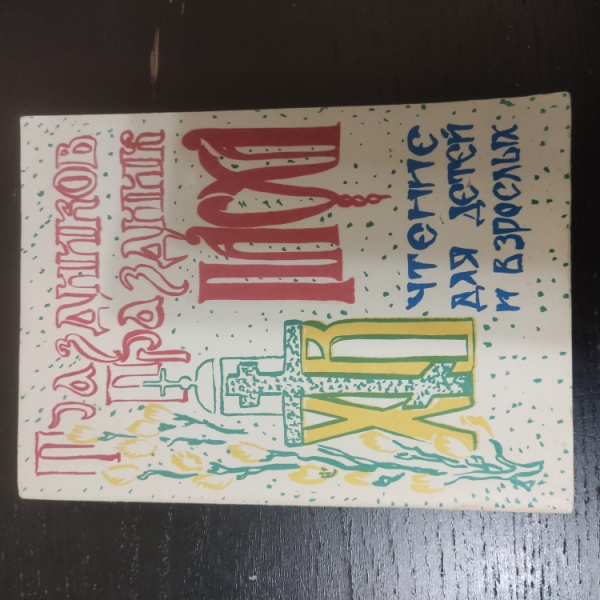 Праздников
Праздник
ПАСХА
ХВ
ЧТЕНИЕ
ДЛЯ ДЕТЕЙ
И ВЗРОСЛЫХ